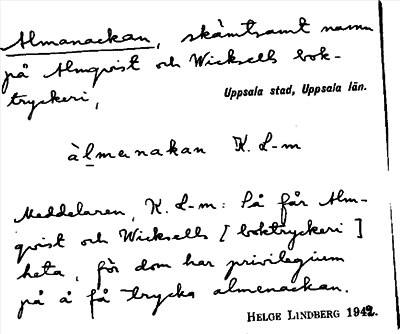 Almanackan, skämtsamt namn
på Almqvist och Wicksells bok-
tryckeri,
Uppsala stad, Uppsala län.
àlmenakan K. L-m
Meddelaren, K. L-m: Så får Alm-
qvist och Wicksells [boktryckeri]
heta, för dom har privilegium
på å få trycka almenackan.
HELGE LINDBERG 1942.